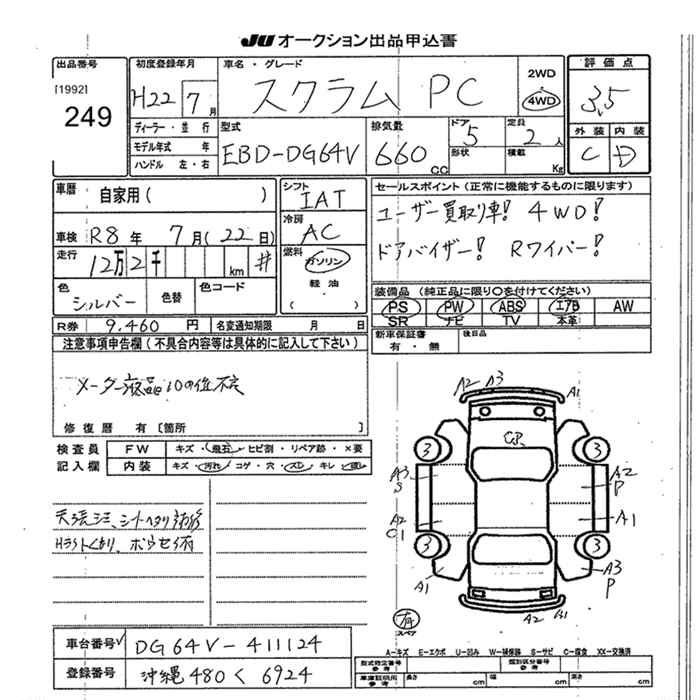 JU オークション出品申込書
出品番号
[1992]
249
初度登録年月
H22 7月
車名・グレード
スクラム PC
2WD
4WD
評価点
3.5
外装 内装
C D
ディーラー・並行
モデル年式 年
ハンドル 左・右
型式
EBD-DG64V
排気量
660cc
ドア
5
形状
定員
2人
積載
Kg
車歴 自家用( )
車検 R8年 7月(22日)
走行
12万2千 km #
色
シルバー
色替
色コード
シフト
IAT
冷房
AC
燃料
ガソリン
軽油
( )
セールスポイント(正常に機能するものに限ります)
ユーザー買取り車! 4WD!
ドアバイザー! Rワイパー!
装備品(純正品に限り○を付けてください)
PS PW ABS エアB AW
SR ナビ TV 本革
R券 9.460円 名変通知期限 月 日
新車保証書
有・無
後日品
注意事項申告欄(不具合内容等は具体的に記入して下さい)
メーター液晶10の位不良
修復歴 有[箇所 ]
検査員
記入欄
FW キズ・飛石・ヒビ割・リペア跡・×要
内装 キズ・汚れ・コゲ・穴・スレ・キレ・
天張シミ、シートヘタリ
Hライトくもり、
A2 A3 A1
CR
3 3
A3
S
A2
P
A2
C1
A1
3 3
A1
A3
P
A2
有
スペア
A-キズ E-エクボ U-凹み W-補修跡 S-サビ C-腐食 XX-交換済
車台番号 DG64V-411124
登録番号 沖縄480く6924
型式指定番号
参考
類別区分番号
参考
車庫証明用
参考
長さ cm 幅 cm 高さ cm